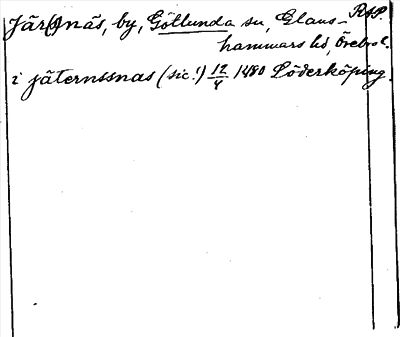 Jär(s)näs, by, Götlunda sn, Glans- RAP.
hammars hd, Örebro l.
i jäternssnas (sic!) 12/4 1480 Söderköping.